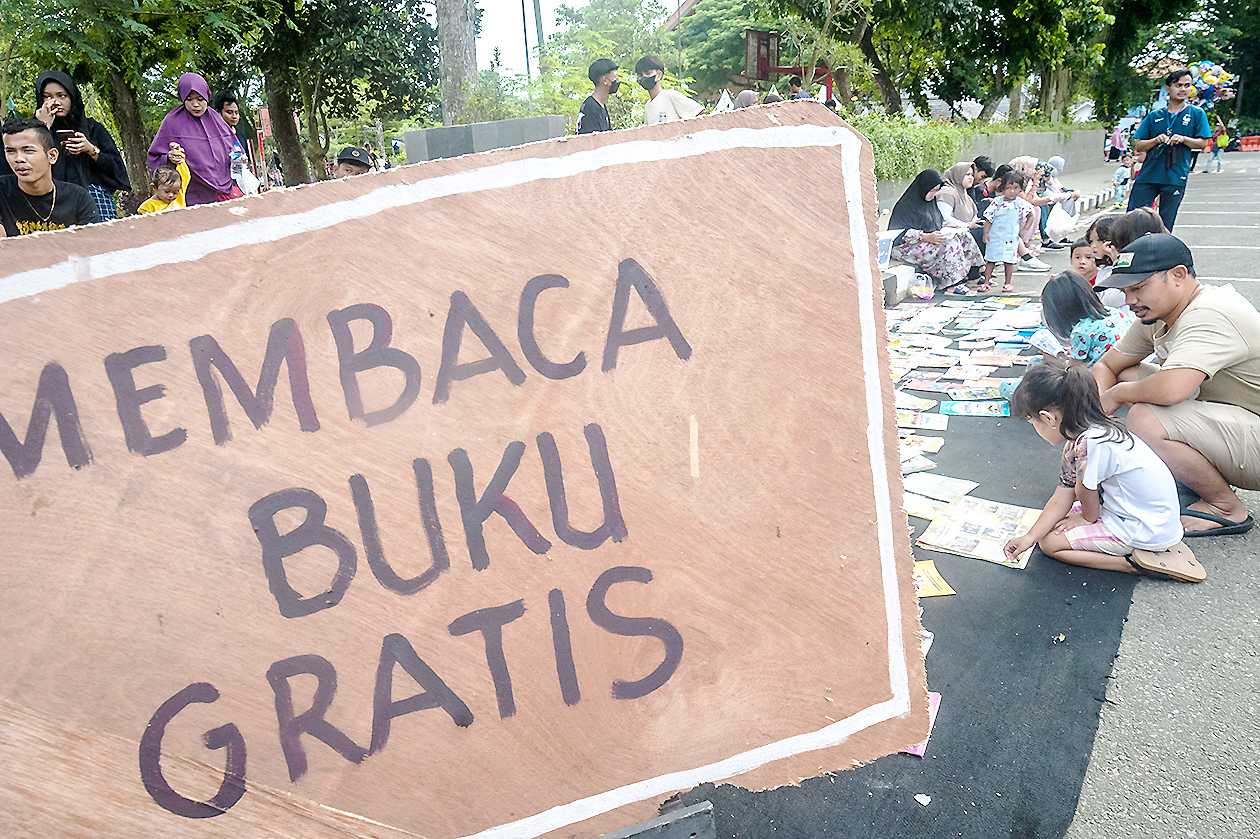 MEMBACA
BUKU
GRATIS